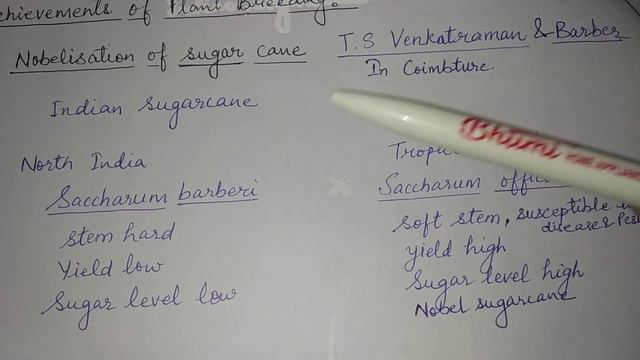 of Plant Breeding.
Nobelisation of sugar cane
T.S Venkatraman & Barber
In Coimbture
Indian sugarcane
Bhumi
North India
Saccharum barberi
Saccharum
stem hard
soft stem, susceptible
disease & Pest
Yield low
yield high
Sugar level low
Sugar level high
Nobel sugarcane